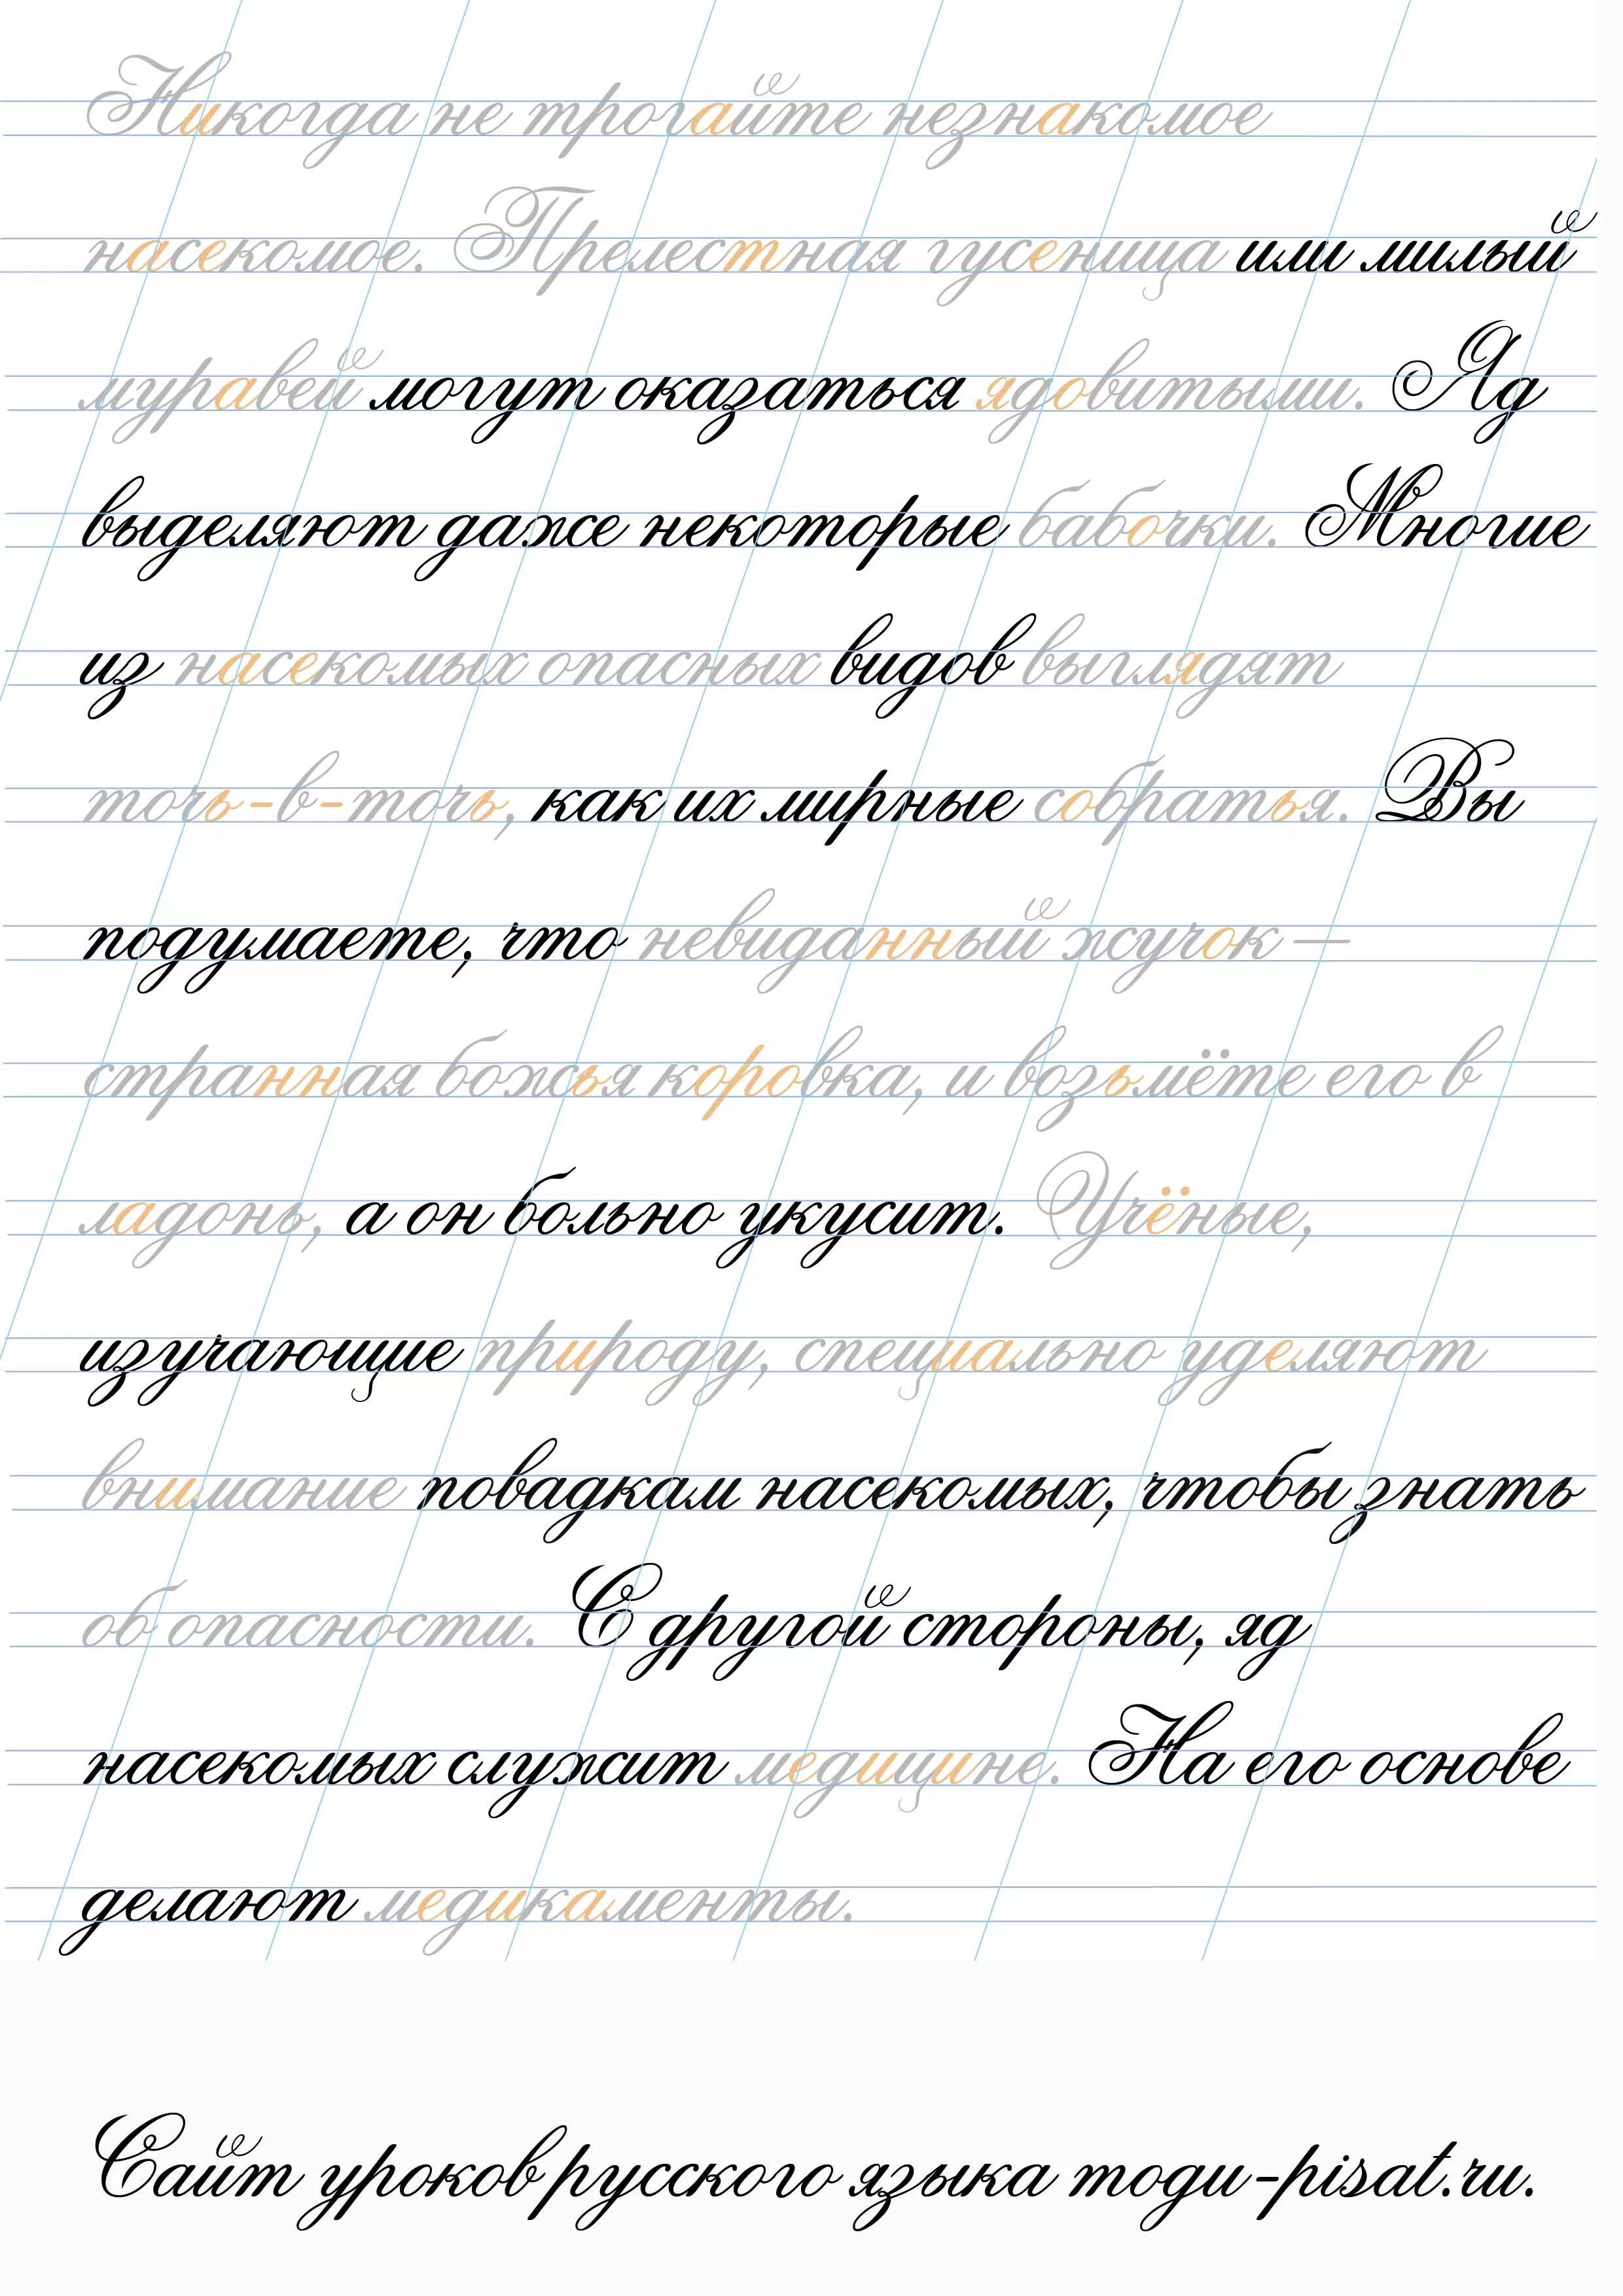 Никогда не трогайте незнакомое
насекомое. Прелестная гусеница или милый
муравей могут оказаться ядовитыми. Яд
выделяют даже некоторые бабочки. Многие
из насекомых опасных видов выглядят
точь-в-точь, как их мирные собратья. Вы
подумаете, что невиданный жучок —
странная божья коровка, и возьмёте его в
ладонь, а он больно укусит. Учёные,
изучающие природу, специально уделяют
внимание повадкам насекомых, чтобы знать
об опасности. С другой стороны, яд
насекомых служит медицине. На его основе
делают медикаменты.
Сайт уроков русского языка mogu-pisat.ru.